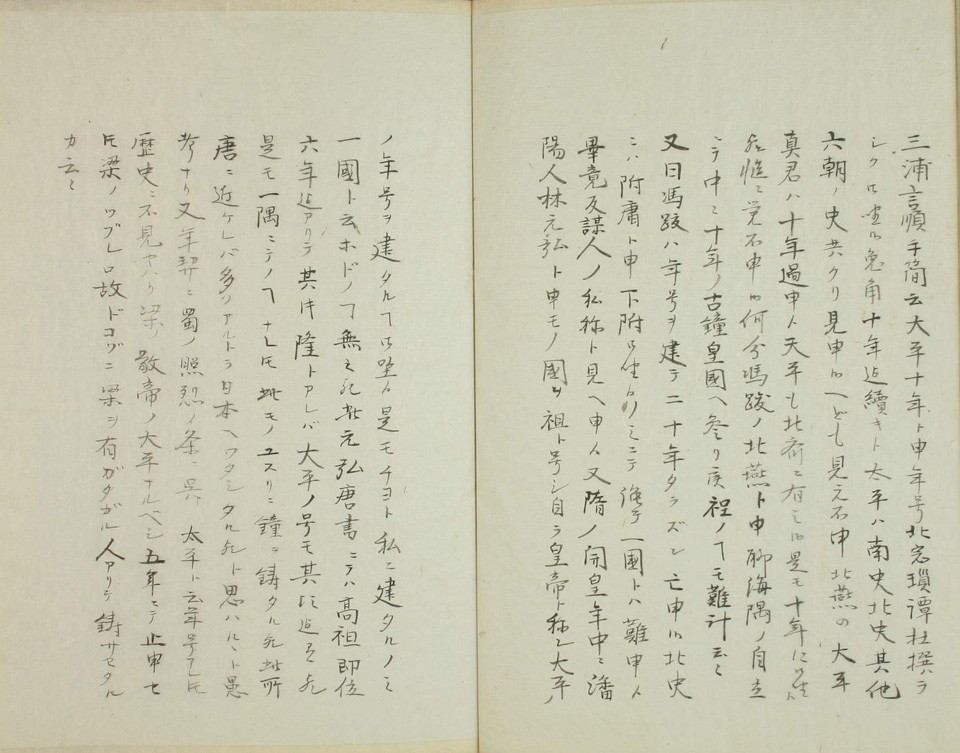 三浦言順手簡云大平十年ト申年号北窓瑣譚杜撰ラ
シク 兎角十年迄續キト太平ハ南史北史其他
六朝ノ史共クリ見申 へども見え不申北燕の大平
真君ハ十年過申 天平も北斉ニ有之 是モ十年に
惟ニ覚不申 何分馮跋ノ北燕ト申聊海隅ノ自立
ニテ中々十年ノ古鐘皇國ヘ参リ候程ノヿモ難計云々
又曰馮跋ハ年号ヲ建テ二十年タラズシ亡申 北史
ニハ附庸ト申下附 ノミニテ 一國トハ難申
畢竟反謀人ノ私称ト見ヘ申 又隋ノ開皇年中ニ潘
陽人林元弘ト申モノ國ヲ祖ト号シ自ラ皇帝ト称シ大平
ノ年号ヲ建タルヿ 是モチヨト私ニ建タルノミ
一國ト云ホドノヿ無之 此元弘唐書ニテハ高祖即位
六年迄アリテ其 隆トアレバ大平ノ号モ其 迄
是モ一隅ニテノヿナレ𪜈此モノユスリニ鐘ヲ鋳タル 此所
唐ニ近ケレバ多ノアルトラ日本ヘワタシタル ト思ハルト愚
考ナリ又年契ニ蜀ノ照烈ノ条ニ 太平ト云年号アレ𪜈
歴史ニ不見ヤハリ梁ノ敬帝ノ大平ナルベシ五年ニテ止申セ
𪜈梁ノツブレ 故ドコゾニ梁ヲ有ガタガル人アリテ鋳サセタル
カ云々